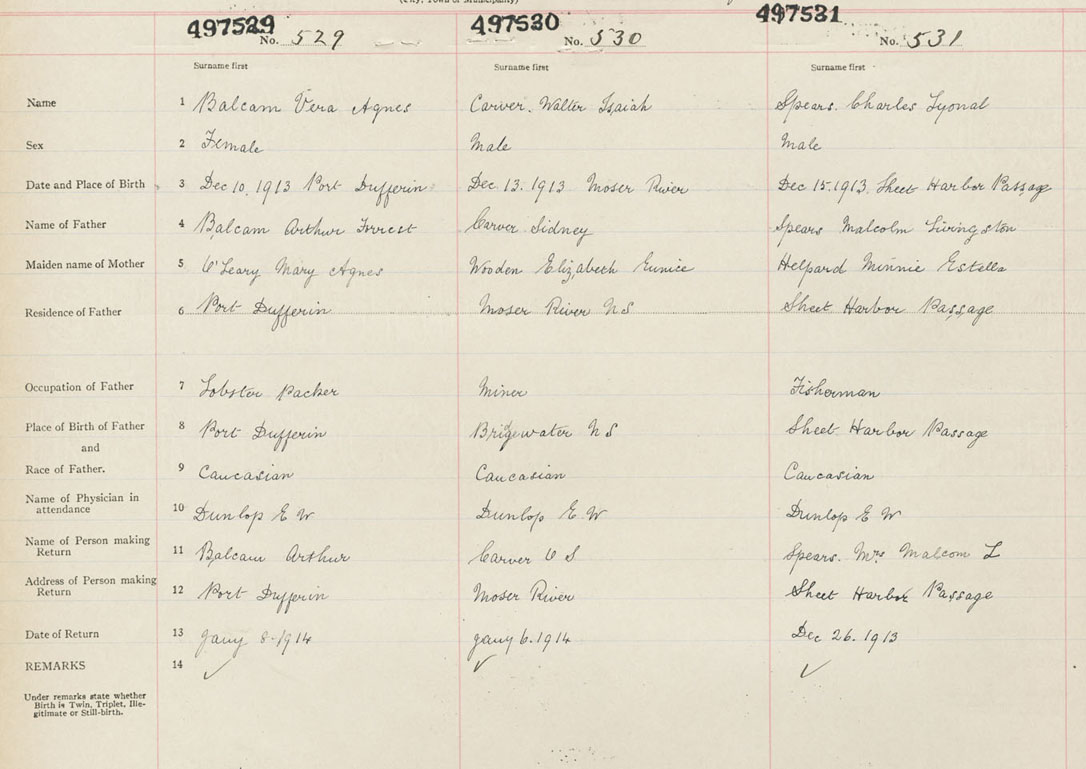 (City, Town or Municipality)
497529 497530 497531
No. 529 No. 530 No. 531
Surname first Surname first Surname first
Name 1 Balcam Vera Agnes Carver. Walter Isaiah Spears. Charles Lyonal
Sex 2 Female Male Male
Date and Place of Birth 3 Dec 10, 1913 Port Dufferin Dec. 13. 1913 Moser River Dec 15. 1913. Sheet Harbor Passage
Name of Father 4 Balcam Arthur Forrest Carver Sidney Spears Malcolm Livingston
Maiden name of Mother 5 O'Leary Mary Agnes Wooden Elizabeth Eunice Helpard Minnie Estella
Residence of Father 6 Port Dufferin Moser River N S Sheet Harbor Passage
Occupation of Father 7 Lobster Packer Miner Fisherman
Place of Birth of Father 8 Port Dufferin Bridgewater N S Sheet Harbor Passage
and
Race of Father. 9 Caucasian Caucasian Caucasian
Name of Physician in
attendance 10 Dunlop E W Dunlop E W Dunlop E W
Name of Person making
Return 11 Balcam Arthur Carver S Spears. Mrs Malcom L
Address of Person making
Return 12 Port Dufferin Moser River Sheet Harbor Passage
Date of Return 13 Jany 8-1914 Jany 6. 1914 Dec 26. 1913
REMARKS 14 ✓ ✓ ✓
Under remarks state whether
Birth is Twin, Triplet, Ille-
gitimate or Still-birth.